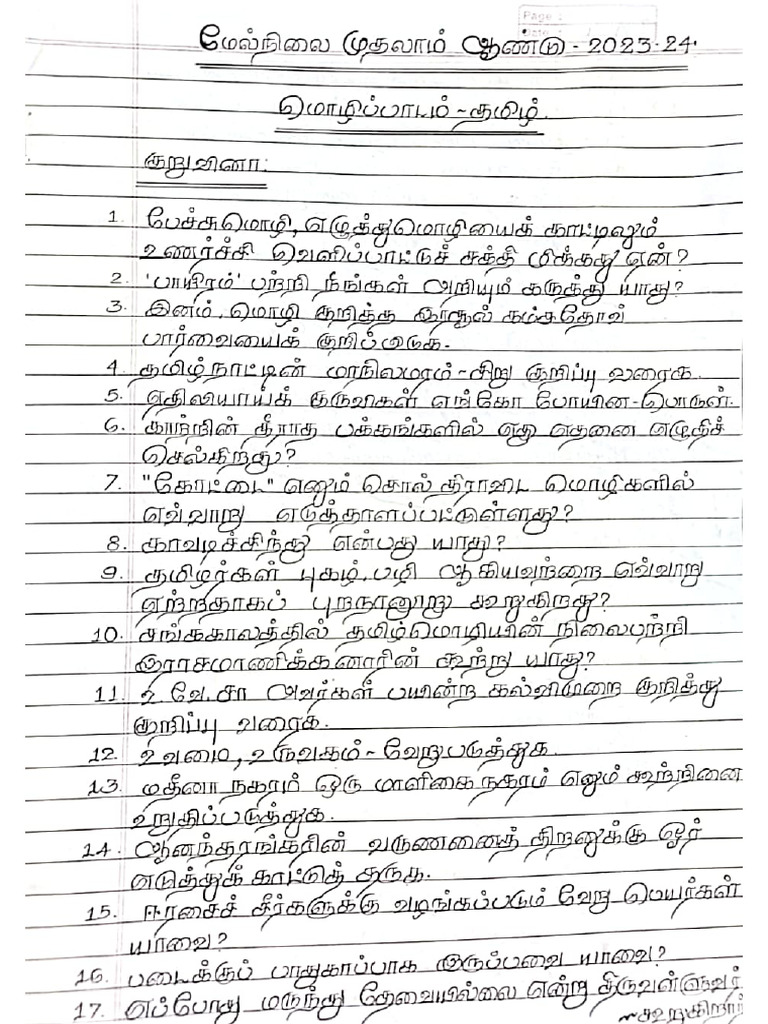 Page :
Date :
மேல்நிலை முதலாம் ஆண்டு - 2023-24.
மொழிப்பாடம் - தமிழ்.
குறுவினா:
1. பேச்சுமொழி, எழுத்துமொழியைக் காட்டிலும்
உணர்ச்சி வெளிப்பாட்டுச் சக்தி மிக்கது ஏன்?
2. 'பாயிரம்' பற்றி நீங்கள் அறியும் கருத்து யாது?
3. இனம், மொழி குறித்த இரசூல் கம்சதோவ்
பார்வையைக் குறிப்பிடுக.
4. தமிழ்நாட்டின் மாநிலமரம் - சிறு குறிப்பு வரைக.
5. ஏதிலியாய்க் குருவிகள் எங்கோ போயின - பொருள்.
6. காற்றின் தீராத பக்கங்களில் எது எதனை எழுதிச்
செல்கிறது?
7. "கோட்டை" எனும் சொல் திராவிட மொழிகளில்
எவ்வாறு எடுத்தாளப்பட்டுள்ளது?
8. காவடிச்சிந்து என்பது யாது?
9. தமிழர்கள் புகழ், பழி ஆகியவற்றை எவ்வாறு
ஏற்றதாகப் புறநானூறு கூறுகிறது?
10. சங்ககாலத்தில் தமிழ்மொழியின் நிலைபற்றி
இராசமாணிக்கனாரின் கூற்று யாது?
11. உ.வே.சா அவர்கள் பயின்ற கல்விமுறை குறித்து
குறிப்பு வரைக.
12. உவமை, உருவகம் - வேறுபடுத்துக.
13. மதீனா நகரம் ஒரு மாளிகை நகரம் எனும் கூற்றினை
உறுதிப்படுத்துக.
14. ஆனந்தரங்கரின் வருணனைத் திறனுக்கு ஓர்
எடுத்துக் காட்டுத் தருக.
15. ஈரசைச் சீர்களுக்கு வழங்கப்படும் வேறு பெயர்கள்
யாவை?
16. படைக்குப் பாதுகாப்பாக இருப்பவை யாவை?
17. எப்போது மருந்து தேவையில்லை என்று திருவள்ளுவர்
கூறுகிறார்